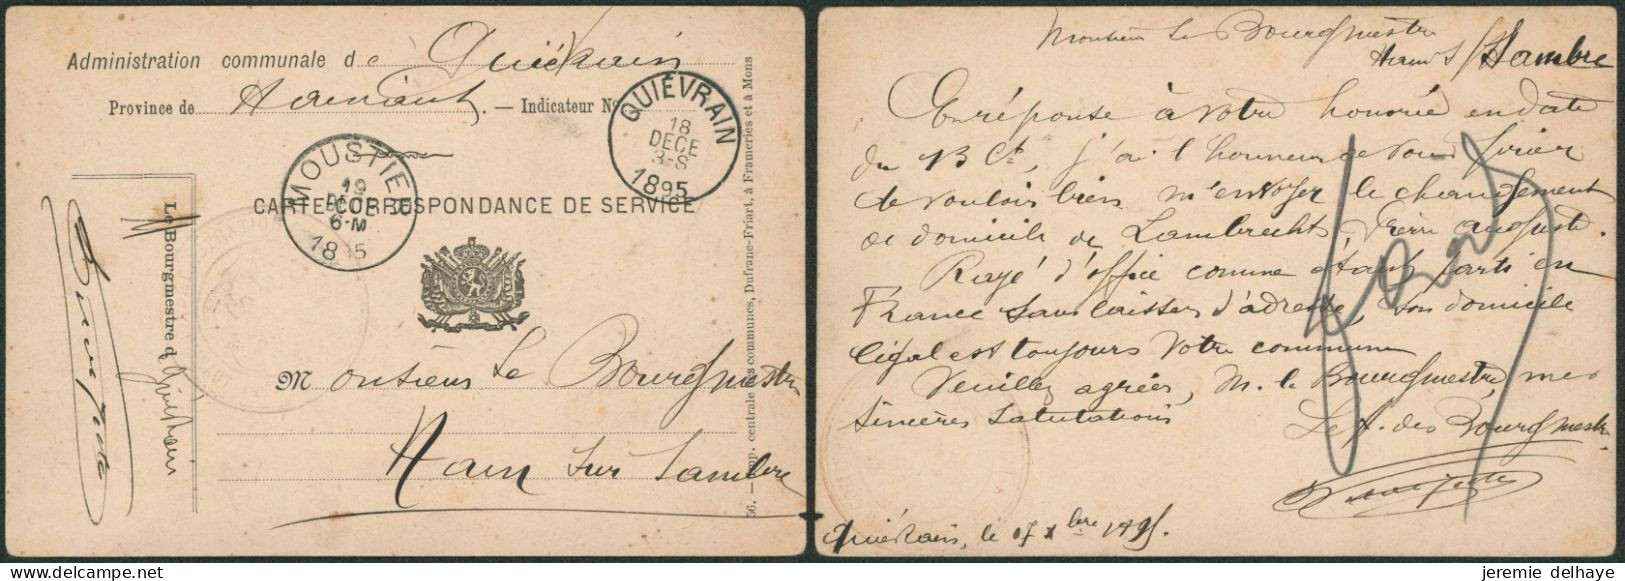 Administration communale de Quiévrain
Province de Hainaut. — Indicateur No
QUIÉVRAIN
18
DECE
3-S
1895
MOUSTIER
19
DECE
6-M
1895
CARTE-CORRESPONDANCE DE SERVICE
Le Bourgmestre d
Quiévrain
Monsieur Le Bourgmestre
Ham sur Sambre
56. — Imp. centrale des communes, Dufrane-Friart, à Frameries et à Mons
Monsieur Le Bourgmestre
Ham s/Sambre
En réponse à votre honorée en date
du 13 Ct, j'ai l'honneur de vous prier
de vouloir bien m'envoyer le changement
de domicile de Lambrechts Pierre Auguste.
Rayé d'office comme étant parti en
France sans laisser d'adresse, son domicile
légal est toujours votre commune
Veuillez agréer, M. le Bourgmestre, mes
Sincères salutations
Le f. des Bourgmestre
Quiévrain, le 17 Xbre 1895.
jeremie delhaye